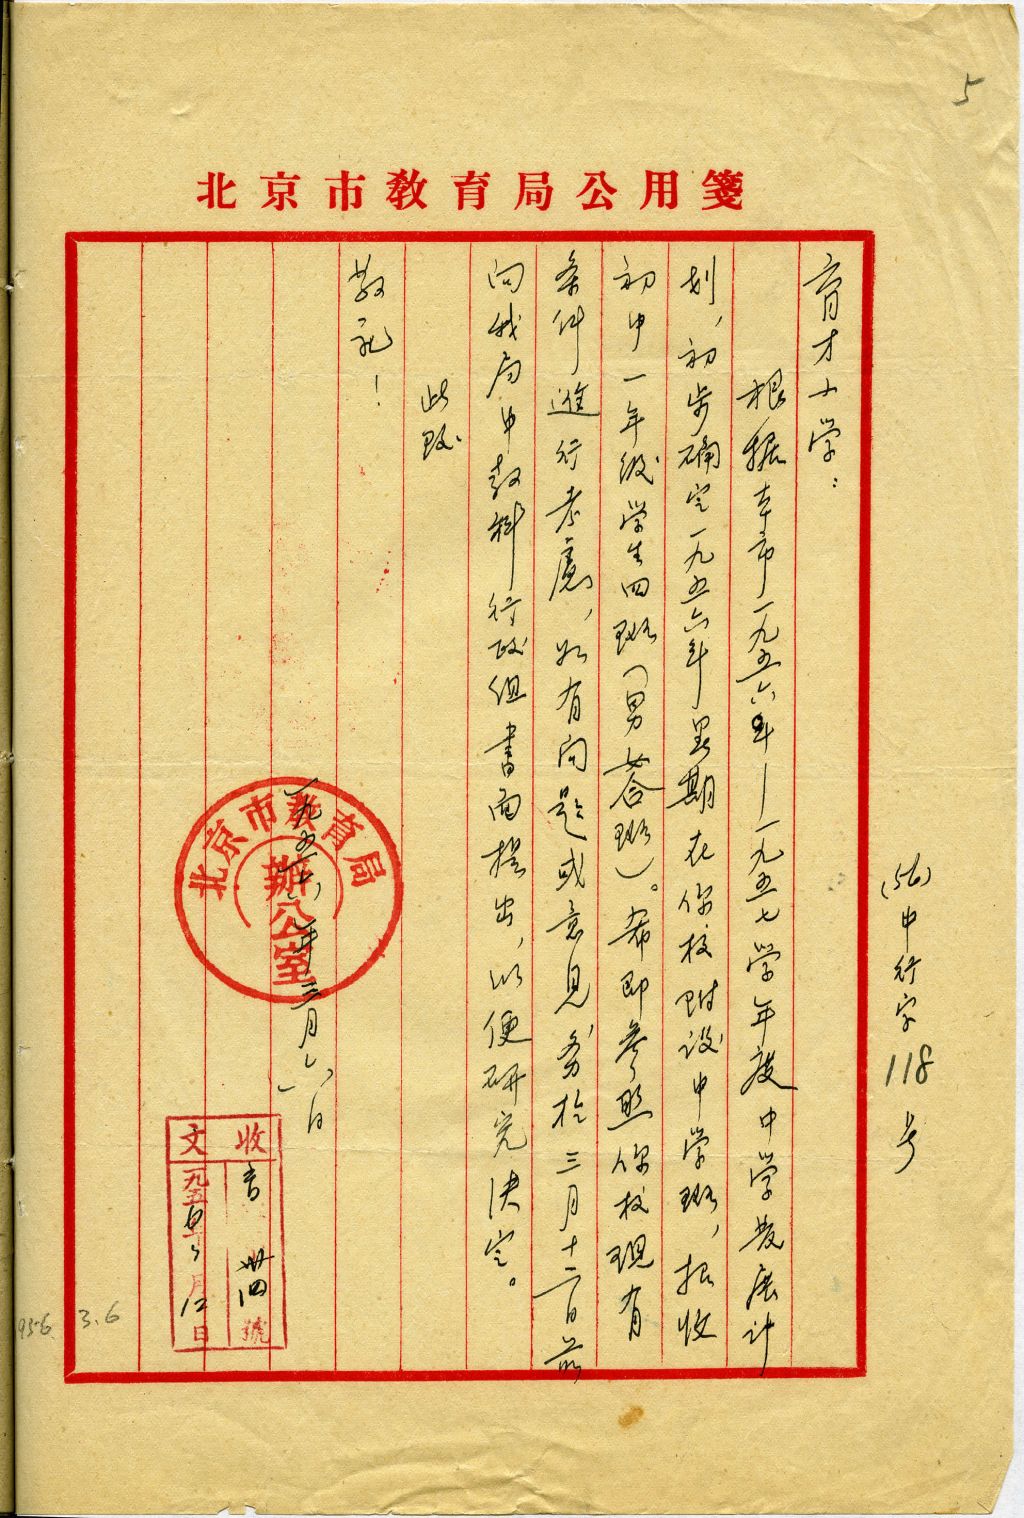 5
北京市教育局公用箋
(56)中行字118号
育才小学：
根据本市一九五六年—一九五七学年度中学发展计
划，初步确定一九五六年暑期在你校附设中学班，招收
初中一年级学生四班（男女合班）。希即参照你校现有
条件进行考慮，如有问题或意見务於三月十二日前
向我局中教科行政组書面提出，以便研究决定。
此致
敬礼！
一九五六年三月六日
北京市教育局
辦公室
收文
卅四號
一九五6年3月12日
1956 3.6